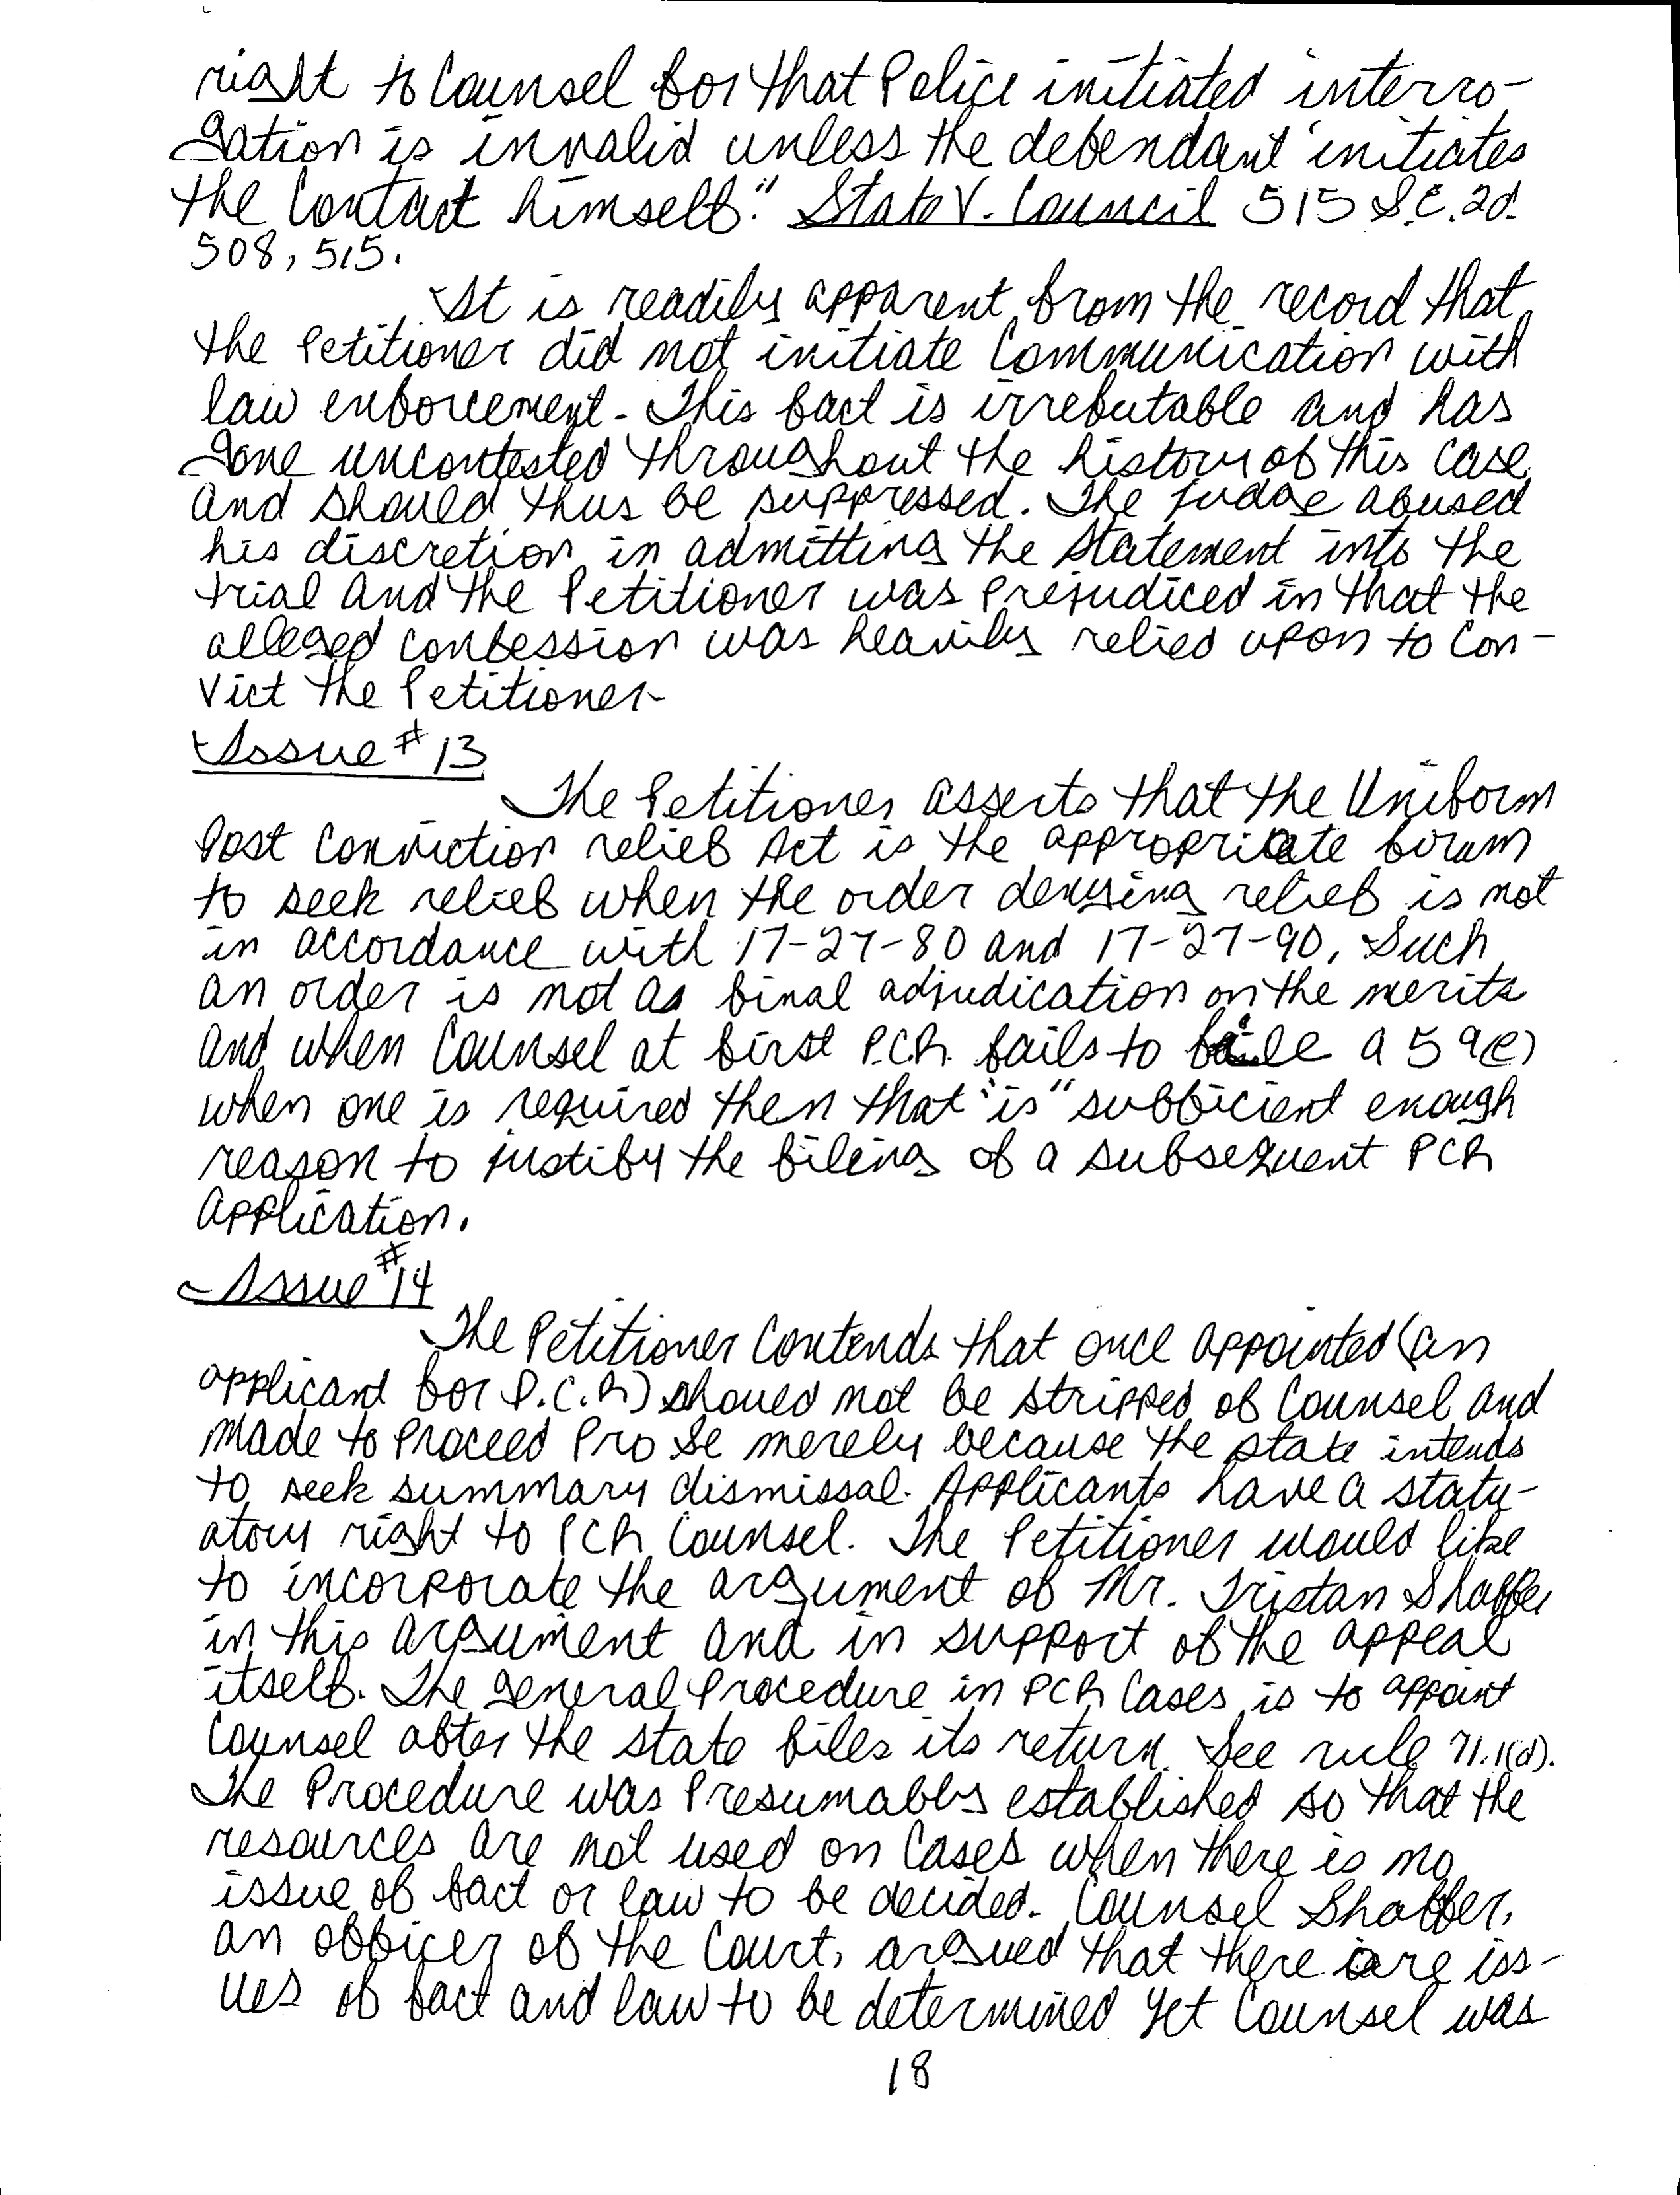 right to Counsel for that Police initiated interro-
gation is invalid unless the defendant 'initiates
the Contact himself." State V. Council 515 S.E. 2d.
508, 515.
It is readily apparent from the record that
the Petitioner did not initiate Communication with
law enforcement. This fact is irrebutable and has
gone uncontested throughout the history of this case
and should thus be suppressed. The judge abused
his discretion in admitting the statement into the
trial and the Petitioner was prejudiced in that the
alleged confession was heavily relied upon to Con-
vict the Petitioner.
Issue # 13
The Petitioner asserts that the Uniform
Post Conviction relief Act is the appropriate forum
to seek relief when the order denying relief is not
in accordance with 17-27-80 and 17-27-90. Such
an order is not as final adjudication on the merits
and when Counsel at first P.C.R. fails to file a 59(e)
when one is required then that "is" sufficient enough
reason to justify the filing of a subsequent PCR
Application.
Issue #14
The Petitioner Contends that once appointed (an
applicant for P.C.R.) should not be stripped of Counsel and
made to Proceed Pro Se merely because the state intends
to seek summary dismissal. Applicants have a statu-
atory right to PCR Counsel. The Petitioner would like
to incorporate the argument of Mr. Tristan Shaffer
in this argument and in support of the appeal
itself. The general Procedure in PCR Cases is to appoint
Counsel after the state files its return. See rule 71.1(d).
The Procedure was Presumably established so that the
resources are not used on Cases when there is no
issue of fact or law to be decided. Counsel Shaffer,
an officer of the Court, argued that there are iss-
ues of fact and law to be determined yet Counsel was
18